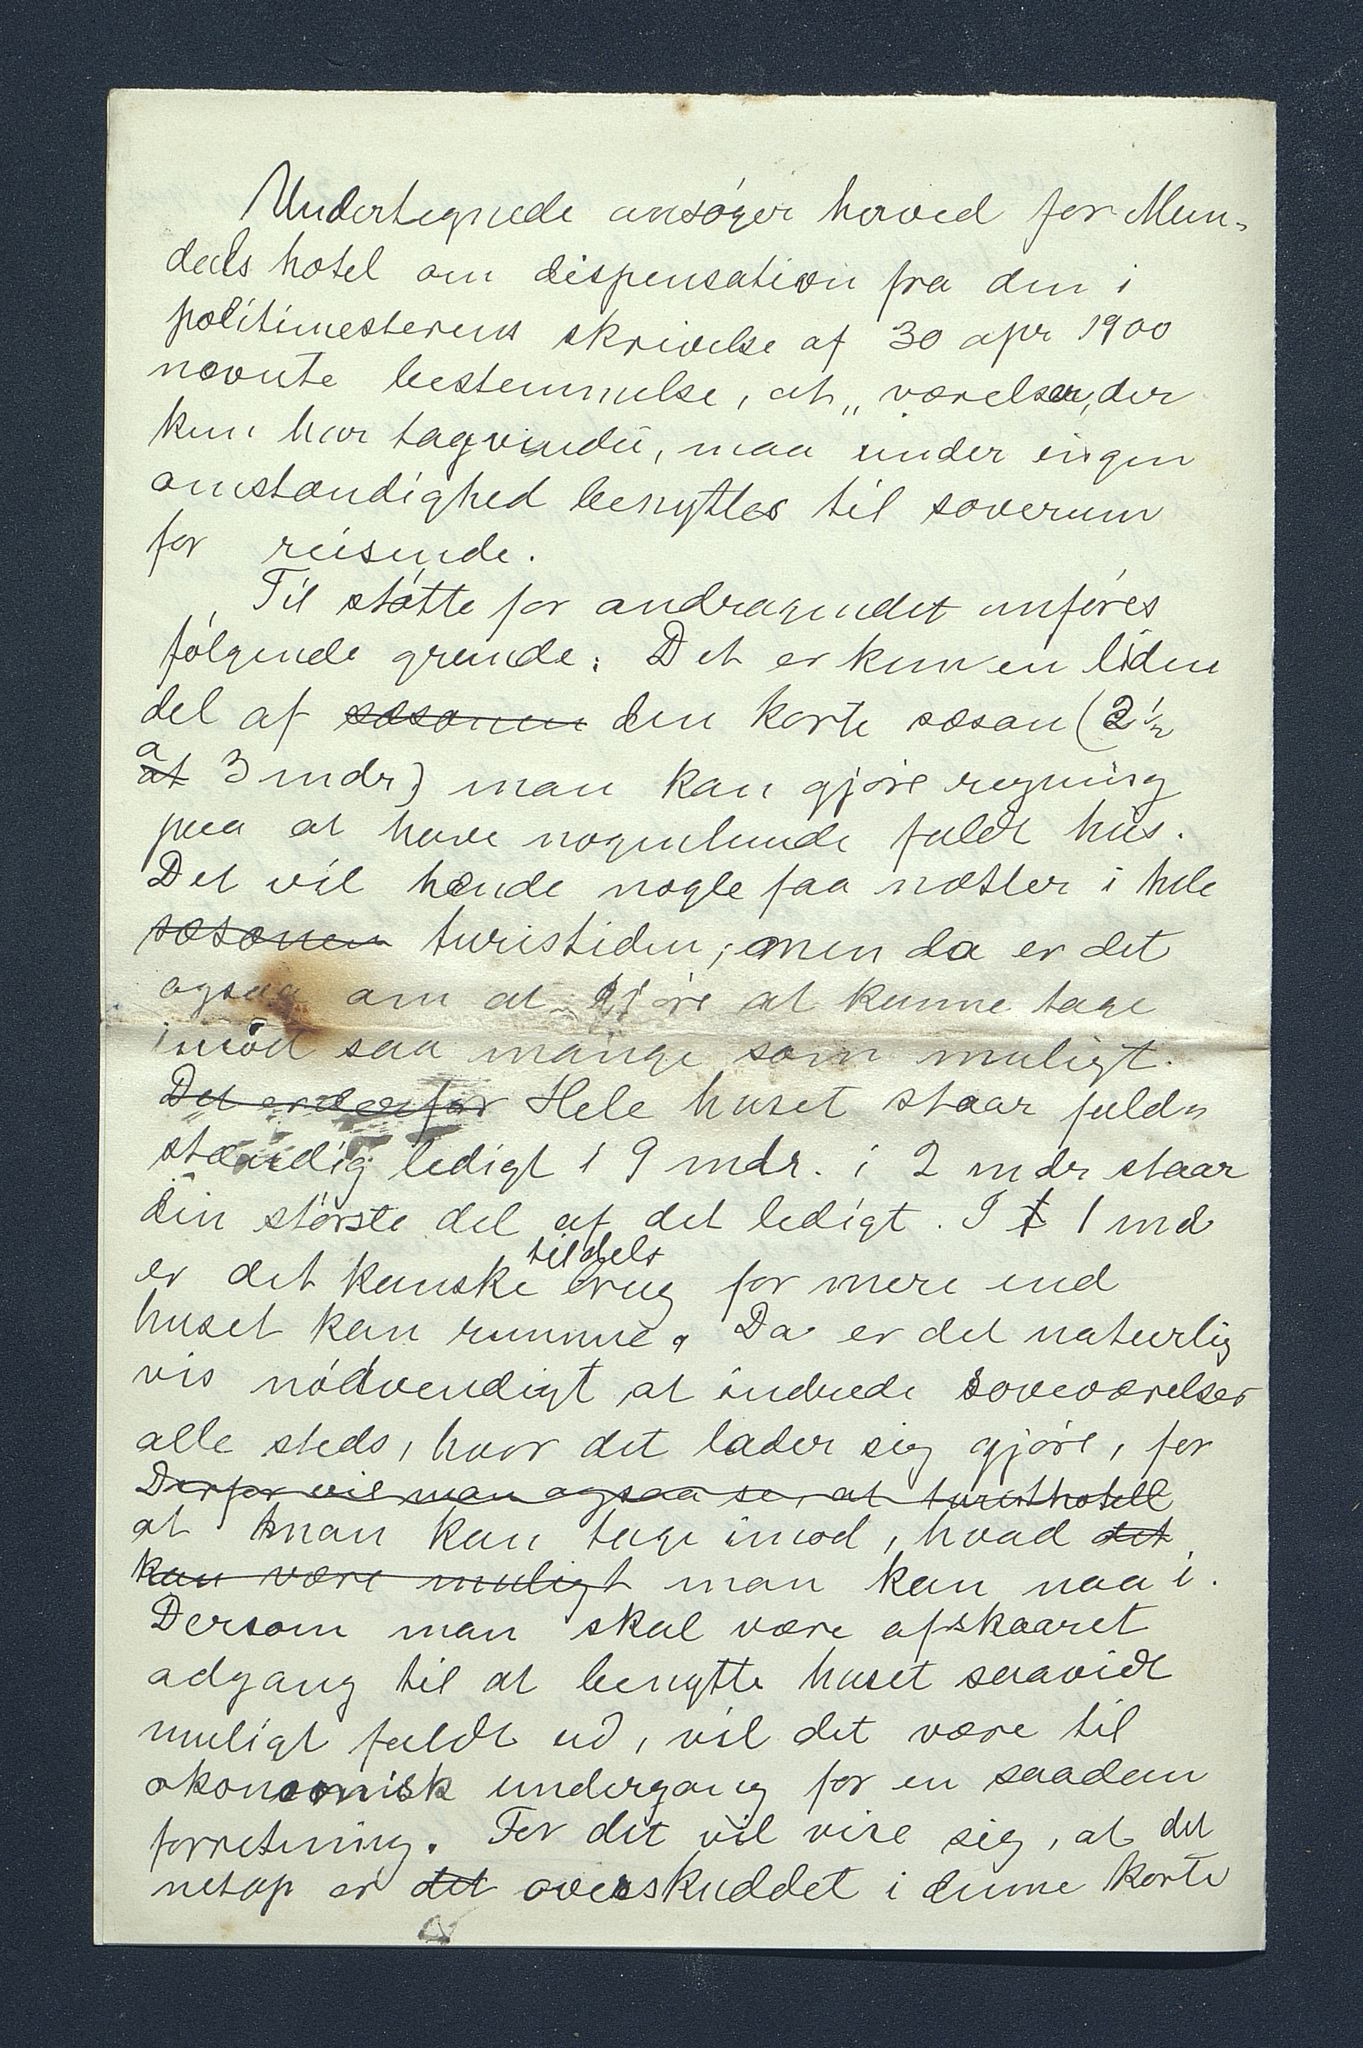 Undertegnede ansøger herved for Mun-
dals hotel om dispensation fra den i
politimesterens skrivelse af 30 apr 1900
nævnte bestemmelse, at „værelser, der
kun har tagvindu, maa under ingen
omstændighed benyttes til soverum
for reisende.
Til støtte for andragendet anføres
følgende grunde: Det er kun en liden
del af sæsonen den korte sæson (2 ½
at a 3 mdr) man kan gjøre regning
paa at have nogenlunde fuldt hus.
Det vil hænde nogle faa nætter i hele
sæsonen turistiden; men da er det
ogsaa om at gjøre at kunne tage
imod saa mange som muligt.
Det er derfor Hele huset staar fuld-
stændig ledigt i 9 mdr. i 2 mdr staar
den største del af det ledigt. I 1 md
er det kanske tildels brug for mere end
huset kan rumme. Da er det naturlig
vis nødvendigt at indrede soveværelser
alle steds, hvor det lader sig gjøre, for
Derfor vil man ogsaa se, at turisthotell
at man kan tage imod, hvad det
kan være muligt man kan naa i.
Dersom man skal være afskaaret
adgang til at benytte huset saavidt
muligt fuldt ud, vil det være til
økonomisk undergang for en saadan
forretning. For det vil vise sig, at det
netop er det overskuddet i denne korte